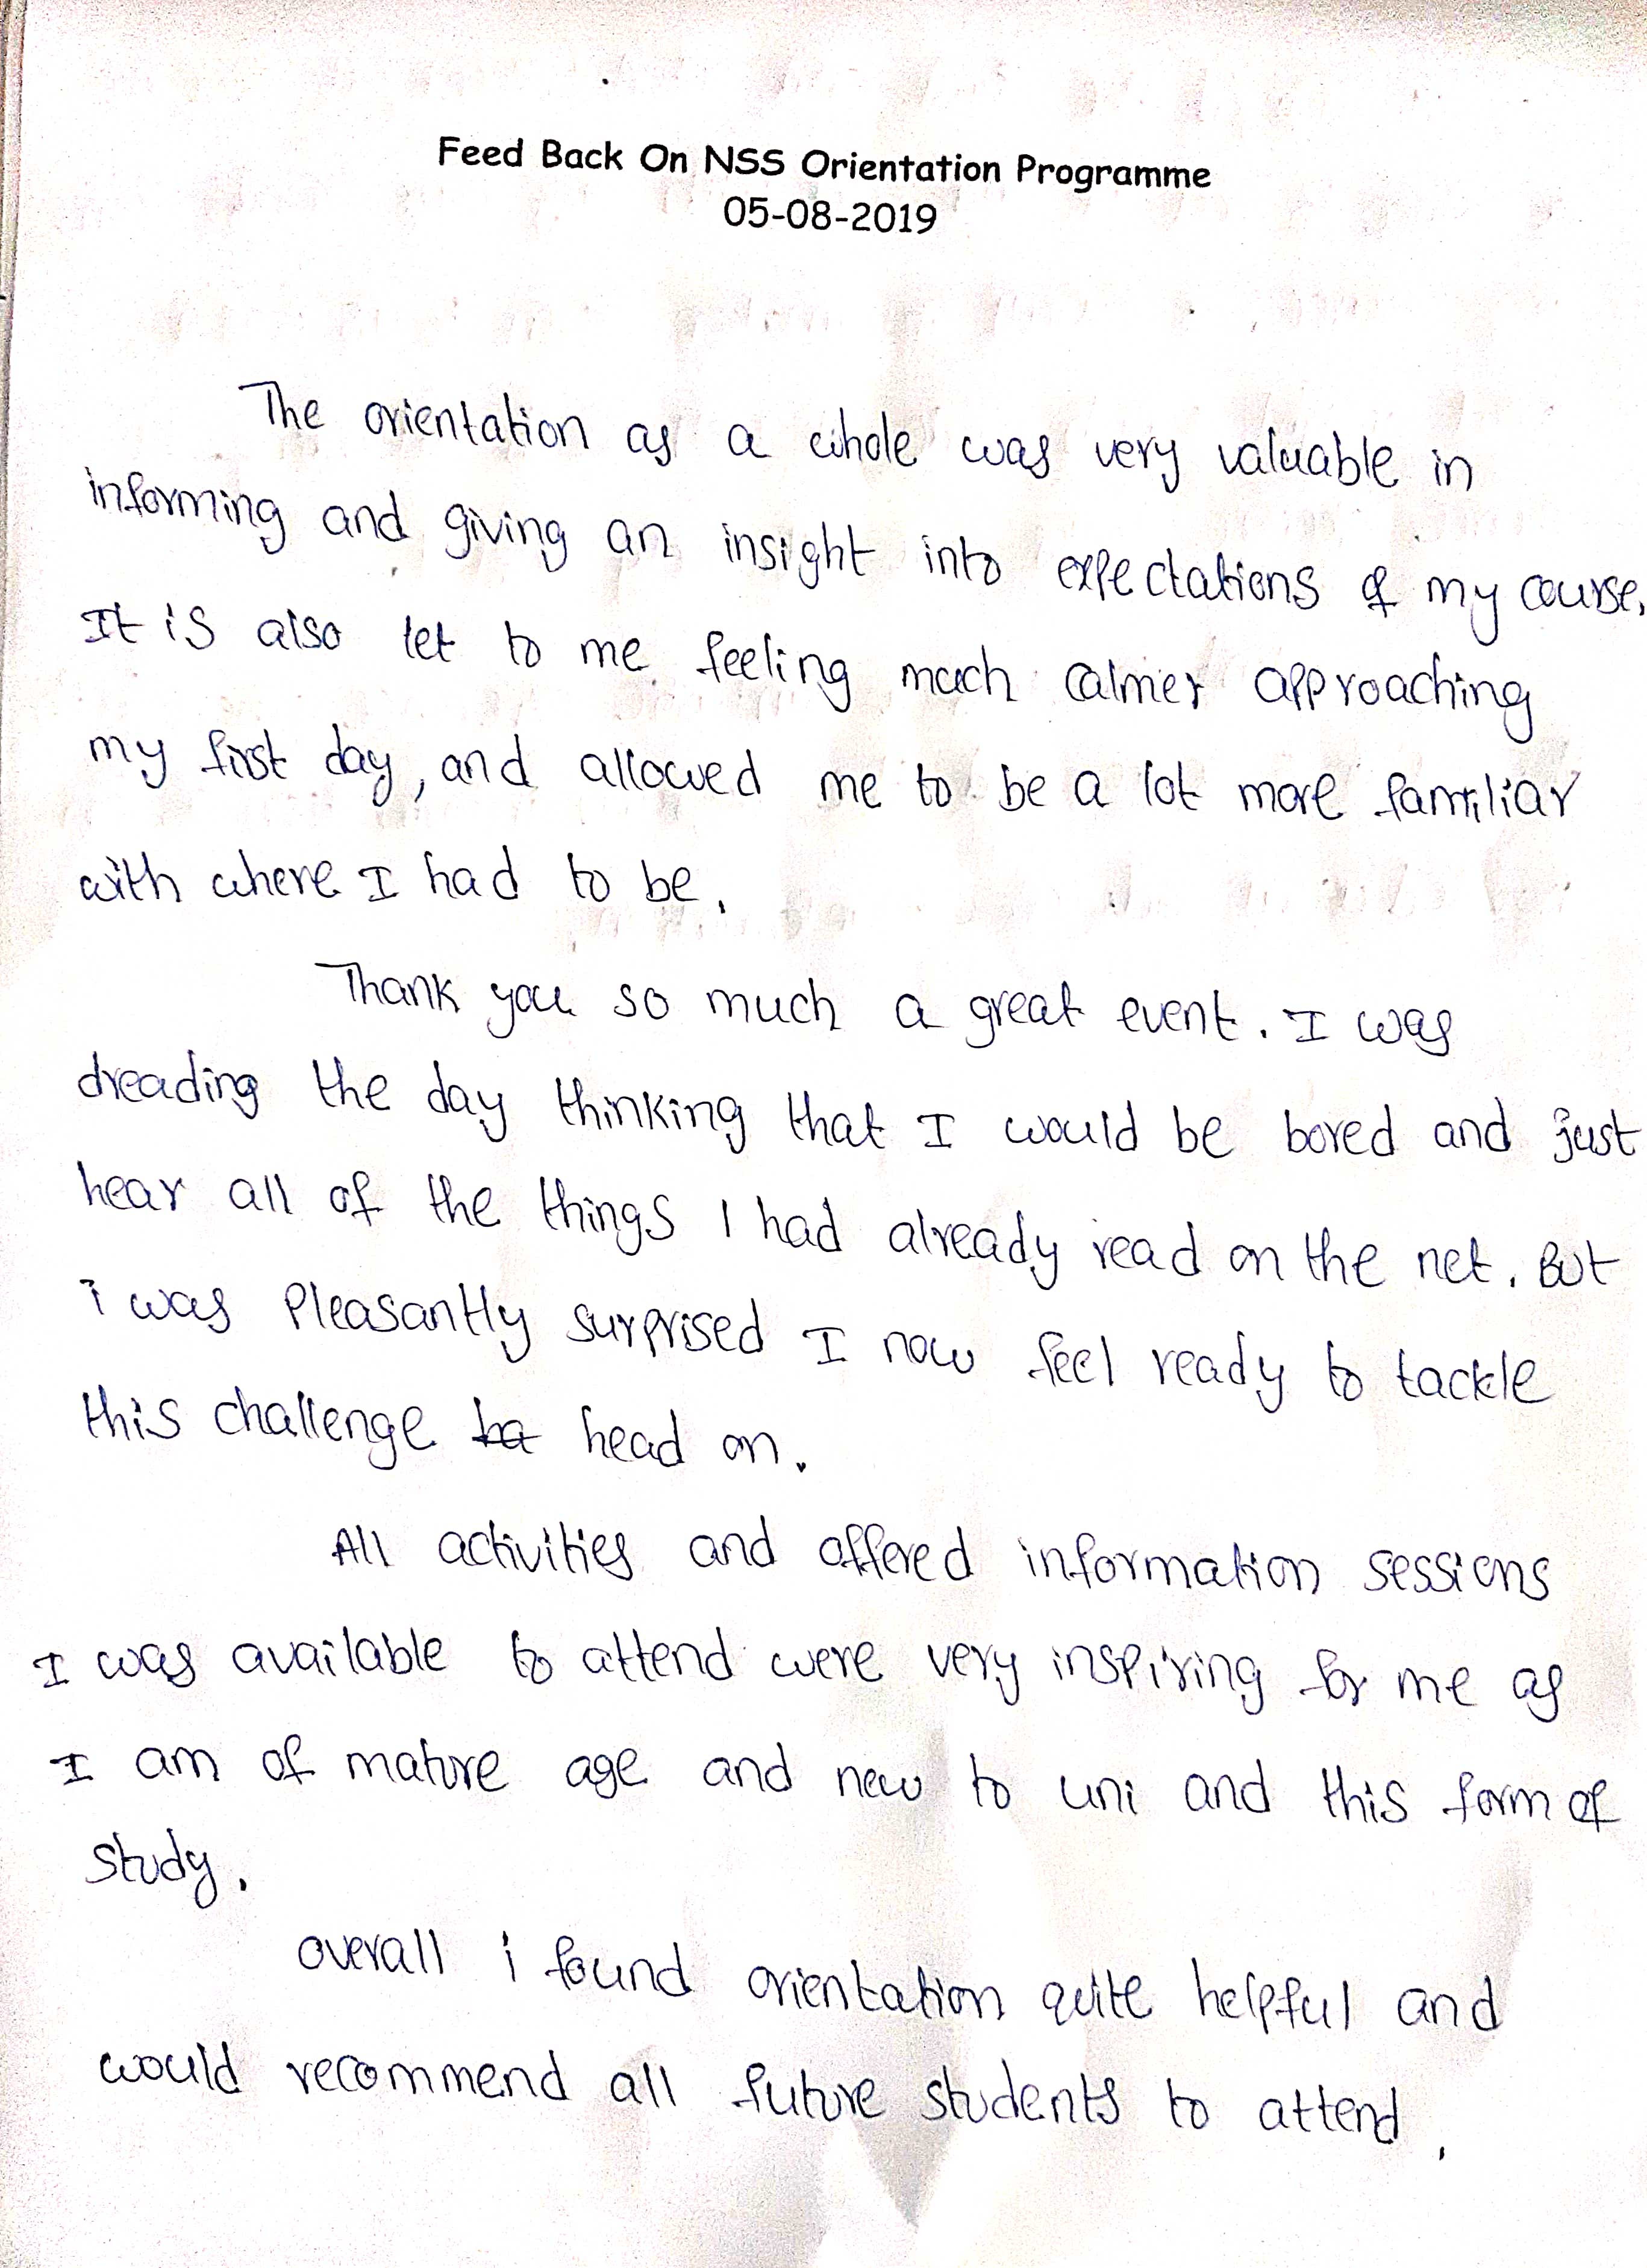 Feed Back On NSS Orientation Programme
05-08-2019
The orientation as a whole was very valuable in
informing and giving an insight into expectations of my course.
It is also let to me feeling much calmer approaching
my first day, and allowed me to be a lot more familiar
with where I had to be.
Thank you so much a great event. I was
dreading the day thinking that I would be bored and just
hear all of the things I had already read on the net. But
i was Pleasantly surprised I now feel ready to tackle
this challenge head on.
All activities and offered information sessions
I was available to attend were very inspiring for me as
I am of mature age and new to uni and this form of
study.
overall i found orientation quite helpful and
would recommend all future students to attend.